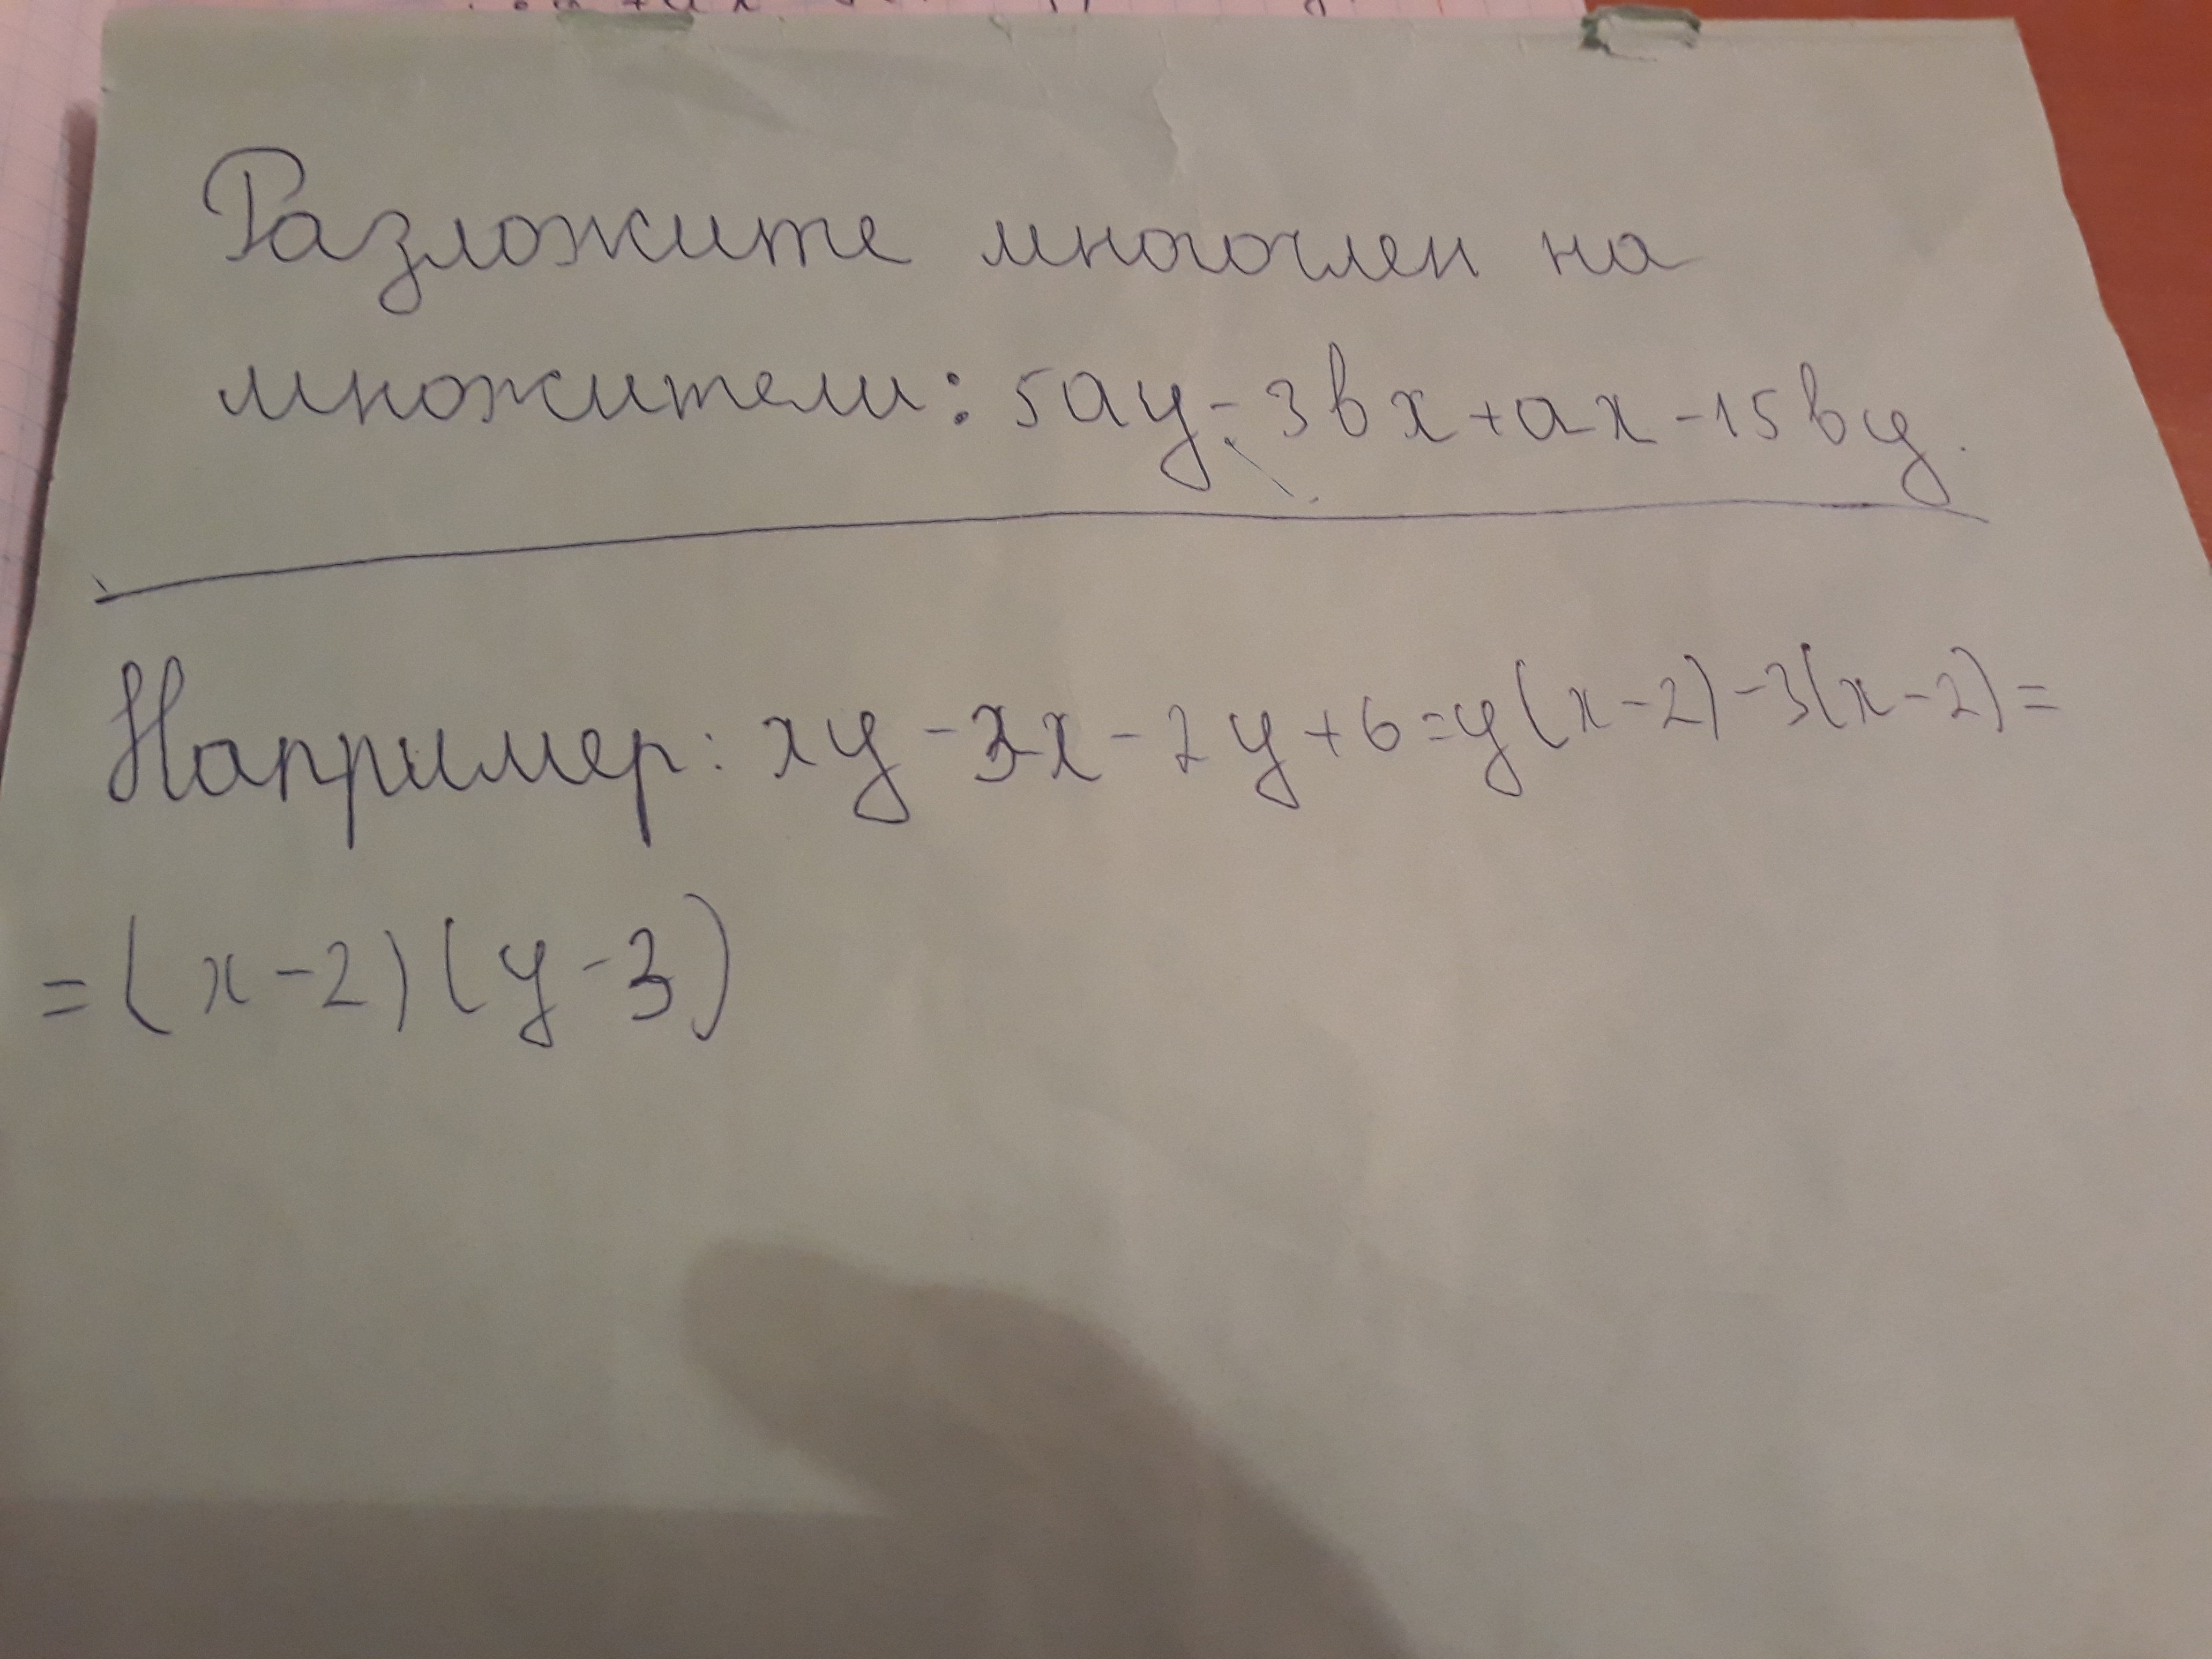 Разложите многочлен на
множители: 5ay - 3bx + ax - 15by.
Например: xy - 3x - 2y + 6 = y(x - 2) - 3(x - 2) =
= (x - 2)(y - 3)